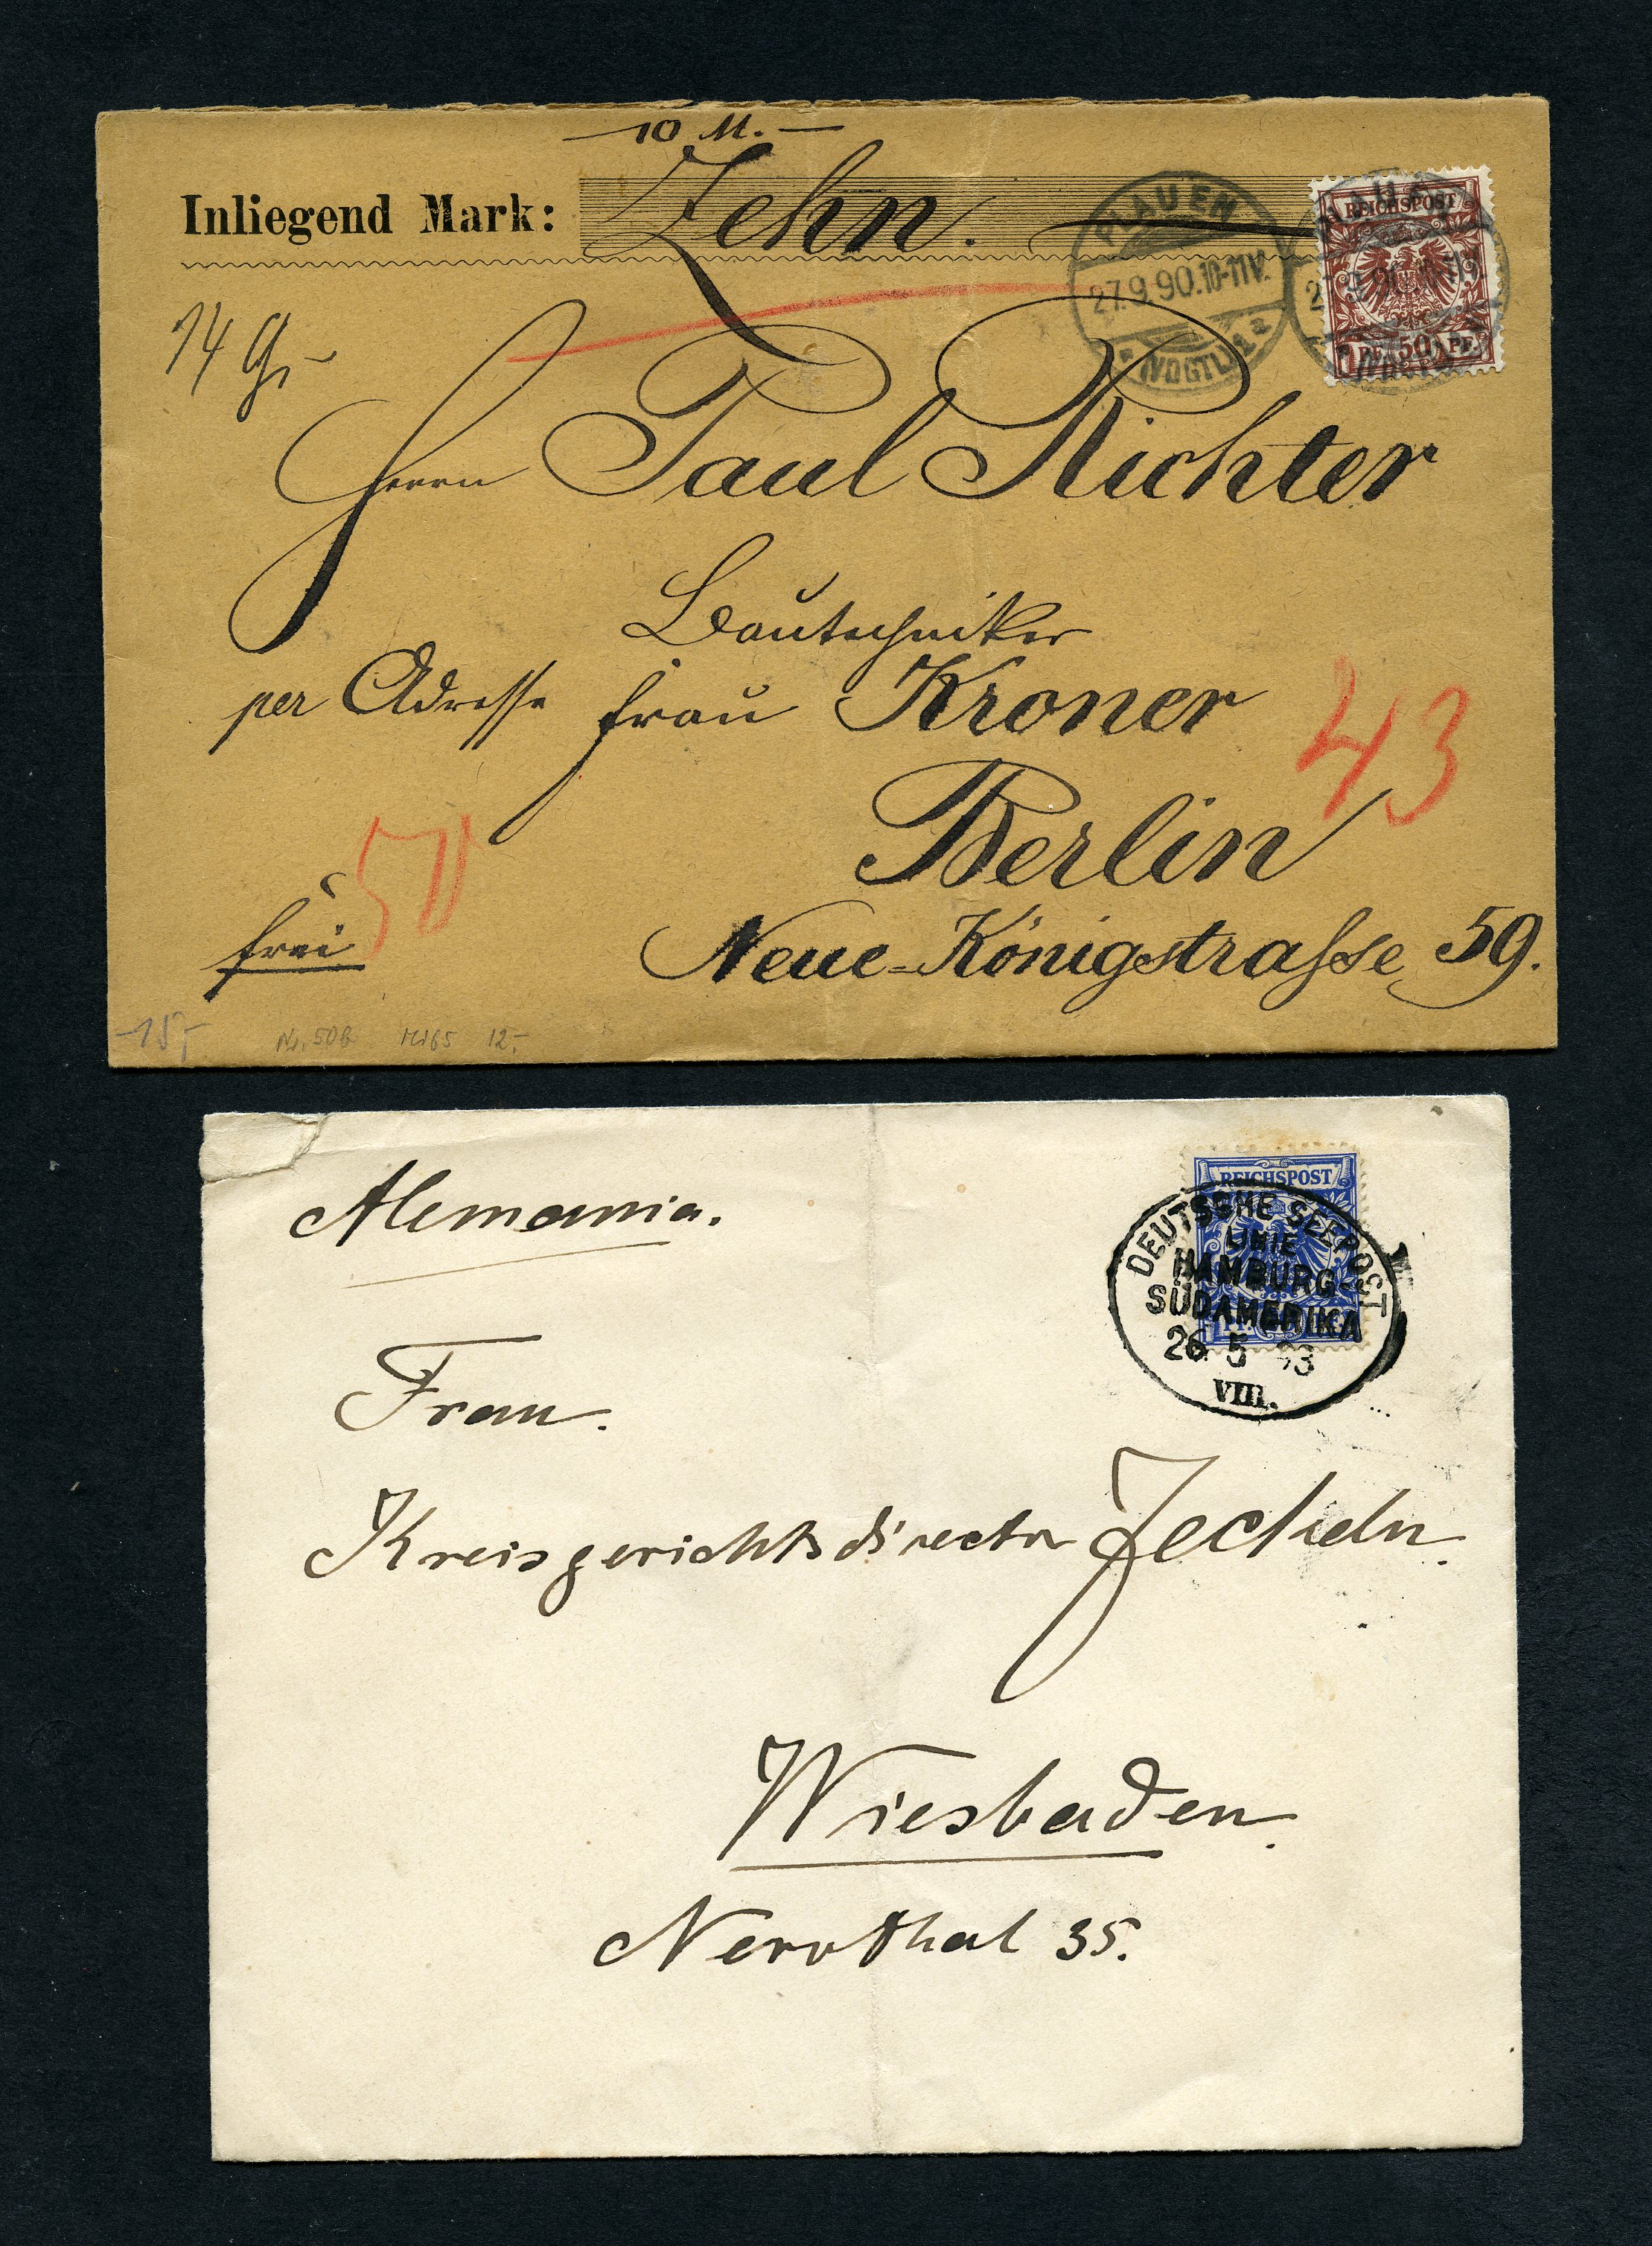 10 M.
Inliegend Mark: Zehn.
PLAUEN
27.9.90.10-11V.
* VOGTL. 1 a
REICHSPOST
PF. 50 PF.
14 Gr
Herrn Paul Richter
Bautechniker
per Adresse Frau Kroner
43
Berlin
50
frei
Neue-Königstrasse 59.
-15,-
12,-
Alemania.
REICHSPOST
DEUTSCHE SEEPOST
LINIE
HAMBURG-
SÜDAMERIKA
26 5 93
VIII.
Frau.
Kreisgerichtsdirector Jeckeln.
Wiesbaden.
Nerothal 35.